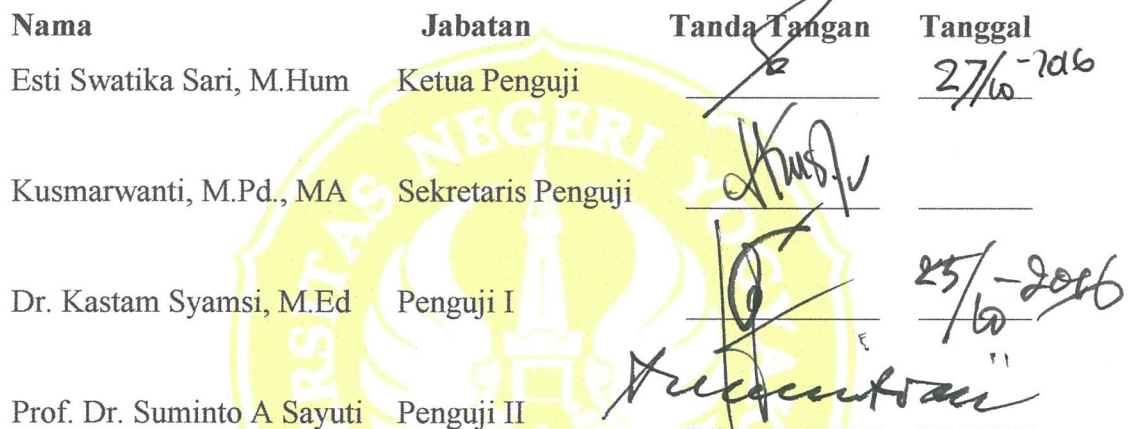 Nama Jabatan Tanda Tangan Tanggal
Esti Swatika Sari, M.Hum Ketua Penguji 27/10-2016
Kusmarwanti, M.Pd., MA Sekretaris Penguji
Dr. Kastam Syamsi, M.Ed Penguji I 25/10-2016
Prof. Dr. Suminto A Sayuti Penguji II